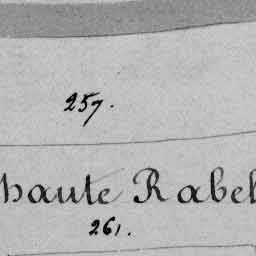 257.
haute Rabel
261.